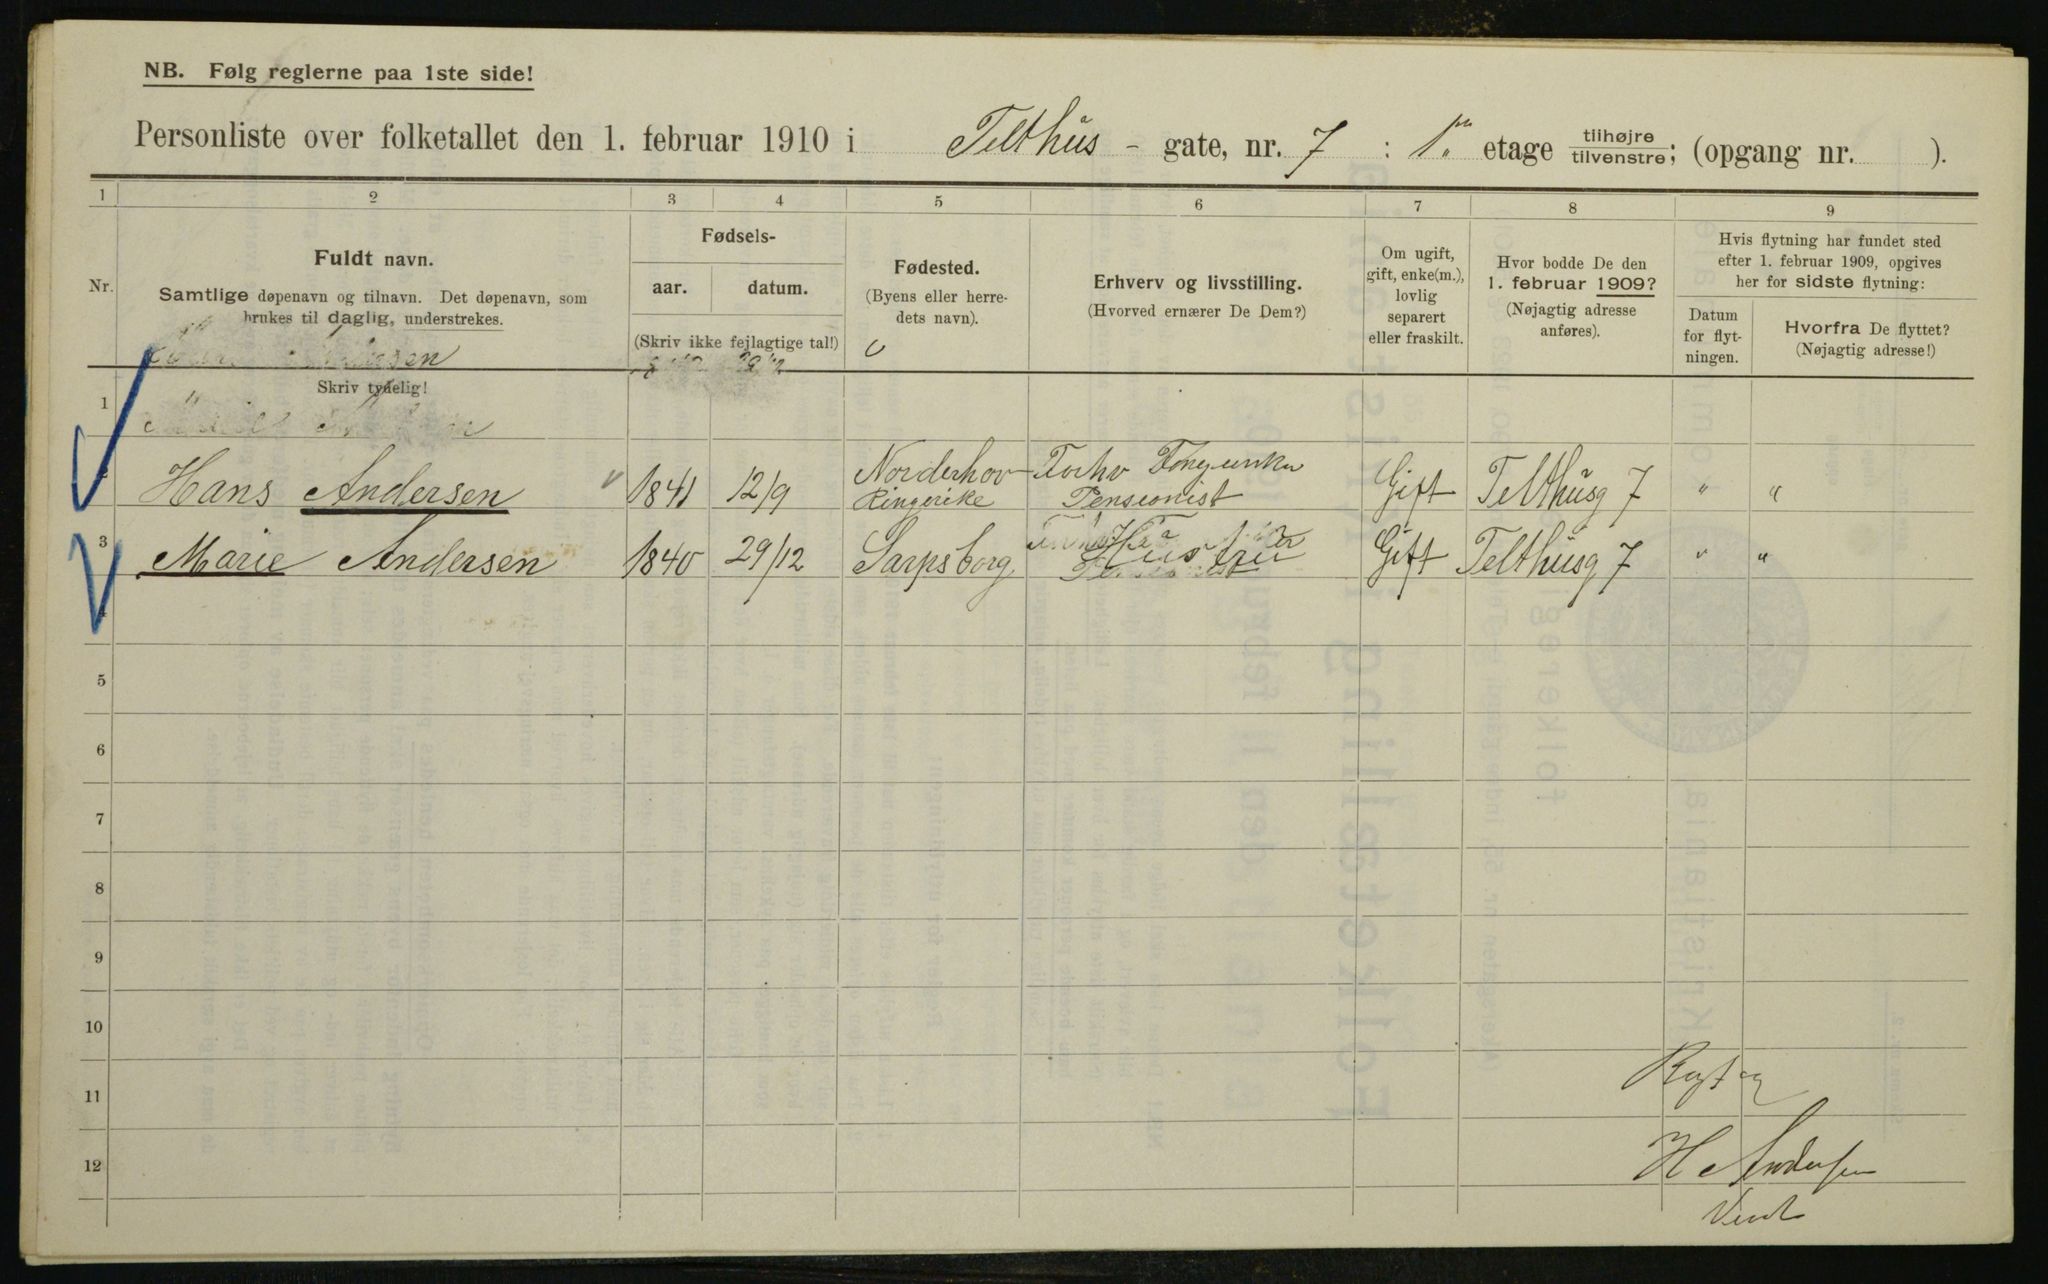 NB. Følg reglerne paa 1ste side!
Personliste over folketallet den 1. februar 1910 i Telthus - gate, nr. 7 : 1. etage tilhøjre tilvenstre; (opgang nr. ).
1 2 3 4 5 6 7 8 9
Nr.
Fuldt navn.
Samtlige døpenavn og tilnavn. Det døpenavn, som
brukes til daglig, understrekes.
Skriv tydelig!
Fødsels-
aar. datum.
(Skriv ikke fejlagtige tal!)
Fødested.
(Byens eller herre-
dets navn).
Erhverv og livsstilling.
(Hvorved ernærer De Dem?)
Om ugift,
gift, enke(m.),
lovlig
separert
eller fraskilt.
Hvor bodde De den
1. februar 1909?
(Nøjagtig adresse
anføres).
Hvis flytning har fundet sted
efter 1. februar 1909, opgives
her for sidste flytning:
Datum
for flyt-
ningen.
Hvorfra De flyttet?
(Nøjagtig adresse!)
1
2 Hans Andersen 1841 12/9 Norderhov Ringerike Pensionist Gift Telthusg 7 " "
3 Marie Andersen 1840 29/12 Sarpsborg Hustru Gift Telthusg 7 " "
4
5
6
7
8
9
10
11
12
H Andersen